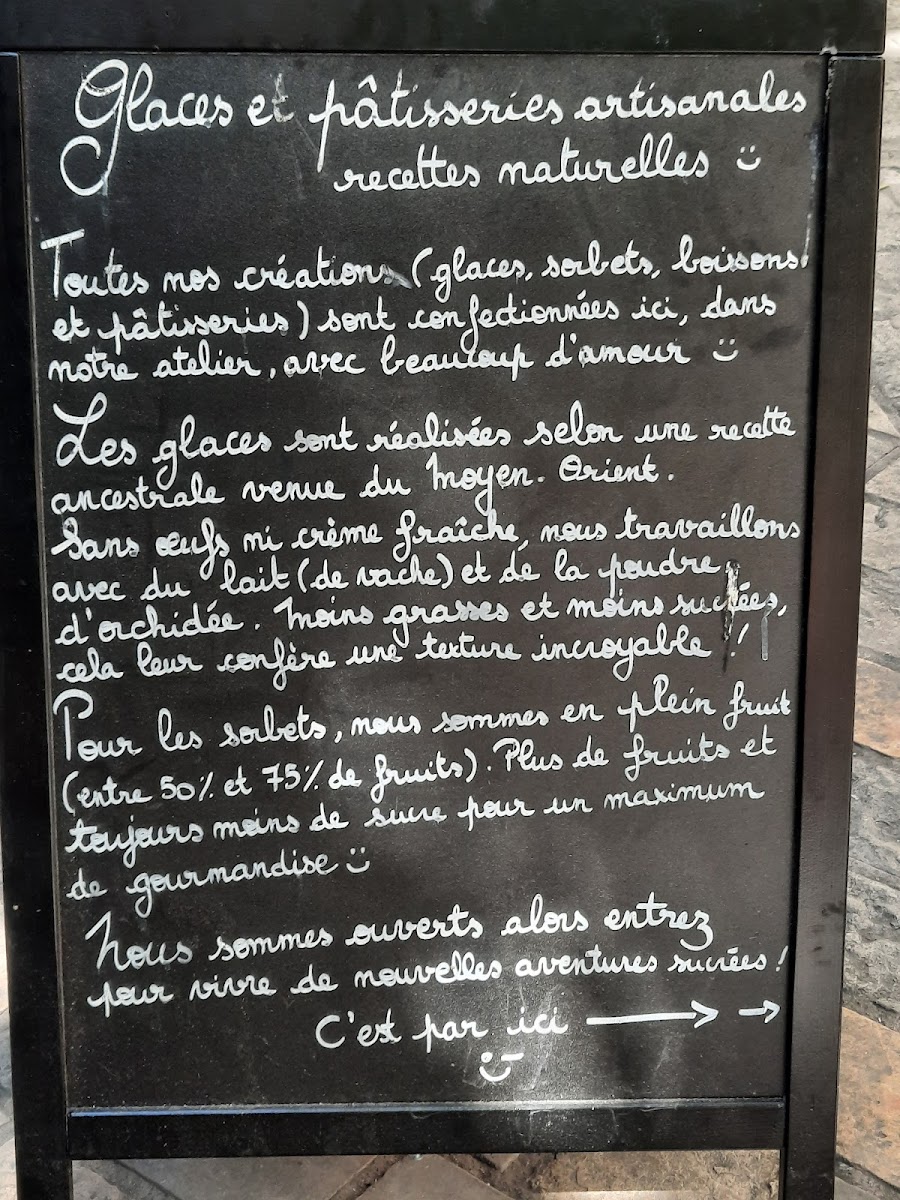 Glaces et pâtisseries artisanales
recettes naturelles
Toutes nos créations (glaces, sorbets, boissons
et pâtisseries) sont confectionnées ici, dans
notre atelier, avec beaucoup d'amour
Les glaces sont réalisées selon une recette
ancestrale venue du Moyen-Orient.
Sans œufs ni crème fraîche, nous travaillons
avec du lait (de vache) et de la poudre
d'orchidée. Moins grasses et moins sucrées,
cela leur confère une texture incroyable !
Pour les sorbets, nous sommes en plein fruit
(entre 50% et 75% de fruits). Plus de fruits et
toujours moins de sucre pour un maximum
de gourmandise
Nous sommes ouverts alors entrez
pour vivre de nouvelles aventures sucrées !
C'est par ici → →